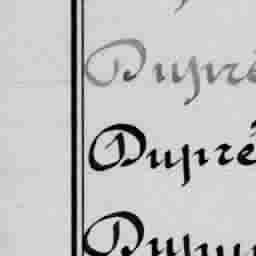 Dupré
Dupré